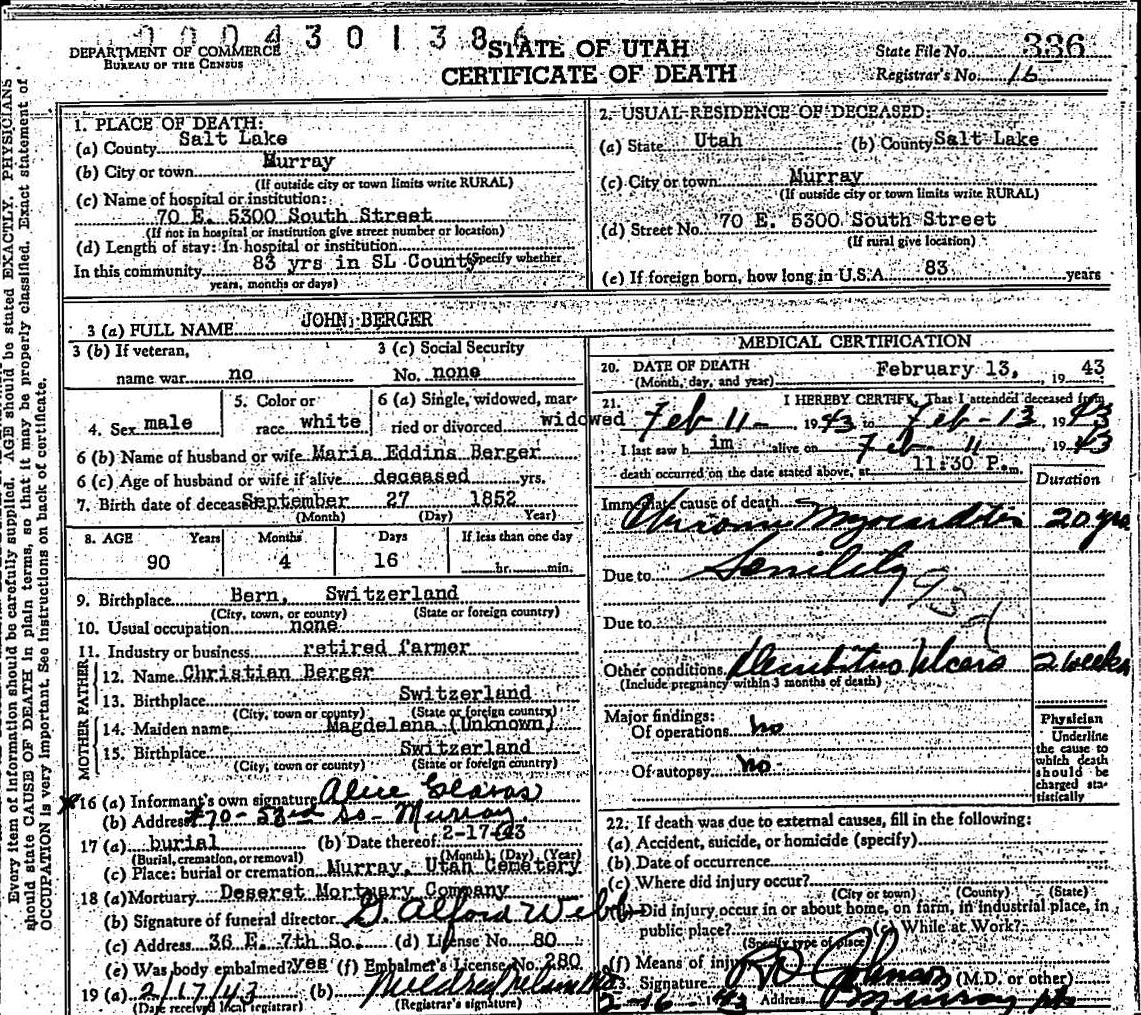 0004301386
DEPARTMENT OF COMMERCE
BUREAU OF THE CENSUS
STATE OF UTAH
CERTIFICATE OF DEATH
State File No. 336
Registrar's No. 16
Every item of information should be carefully supplied. AGE should be stated EXACTLY. PHYSICIANS
should state CAUSE OF DEATH in plain terms, so that it may be properly classified. Exact statement of
OCCUPATION is very important. See instructions on back of certificate.
1. PLACE OF DEATH:
(a) County Salt Lake
(b) City or town Murray
(If outside city or town limits write RURAL)
(c) Name of hospital or institution:
70 E. 5300 South Street
(If not in hospital or institution give street number or location)
(d) Length of stay: In hospital or institution
In this community 83 yrs in SL County (Specify whether
years, months or days)
2. USUAL RESIDENCE OF DECEASED:
(a) State Utah (b) County Salt Lake
(c) City or town Murray
(If outside city or town limits write RURAL)
(d) Street No. 70 E. 5300 South Street
(If rural give location)
(e) If foreign born, how long in U.S.A. 83 years
3 (a) FULL NAME JOHN BERGER
3 (b) If veteran,
name war no
3 (c) Social Security
No. none
4. Sex male
5. Color or
race white
6 (a) Single, widowed, mar-
ried or divorced widowed
6 (b) Name of husband or wife Maria Eddins Berger
6 (c) Age of husband or wife if alive deceased yrs.
7. Birth date of deceased September 27 1852
(Month) (Day) Year)
8. AGE Years Months Days If less than one day
90 4 16 hr. min.
9. Birthplace Bern, Switzerland
(City, town, or county) (State or foreign country)
10. Usual occupation none
11. Industry or business retired farmer
FATHER
12. Name Christian Berger
13. Birthplace Switzerland
(City, town or county) (State or foreign country)
MOTHER
14. Maiden name Magdelena (Unknown)
15. Birthplace Switzerland
(City, town or county) (State or foreign country)
16 (a) Informant's own signature Alice
(b) Address #70 - 53rd So - Murray
17 (a) burial (b) Date thereof 2-17-43
(Burial, cremation, or removal) (Month) (Day) (Year)
(c) Place: burial or cremation Murray, Utah Cemetery
18 (a) Mortuary Deseret Mortuary Company
(b) Signature of funeral director G. Alford Webb
(c) Address 36 E. 7th So. (d) License No. 80
(e) Was body embalmed? yes (f) Embalmer's License No. 280
19 (a) 2/17/43 (b) Mildred Nelson
(Date received local registrar) (Registrar's signature)
MEDICAL CERTIFICATION
20. DATE OF DEATH
(Month, day, and year) February 13, 1943
21. I HEREBY CERTIFY, That I attended deceased from
Feb 11 - 1943 to Feb - 13, 1943
I last saw him alive on Feb - 11 1943
death occurred on the date stated above, at 11:30 P.m.
Duration
Immediate cause of death
Chronic Myocarditis 20 yrs
Due to Senility
Due to
Other conditions Decubitus Ulcers 2 weeks
(Include pregnancy within 3 months of death)
Major findings:
Of operations no
Of autopsy no
Physician
Underline
the cause to
which death
should be
charged sta-
tistically
22. If death was due to external causes, fill in the following:
(a) Accident, suicide, or homicide (specify)
(b) Date of occurrence
(c) Where did injury occur?
(City or town) (County) (State)
Did injury occur in or about home, on farm, in industrial place, in
public place? (e) While at Work?
(Specify type of place)
(f) Means of injury
23. Signature R O Johnson (M.D. or other)
2-16-43 Address Murray